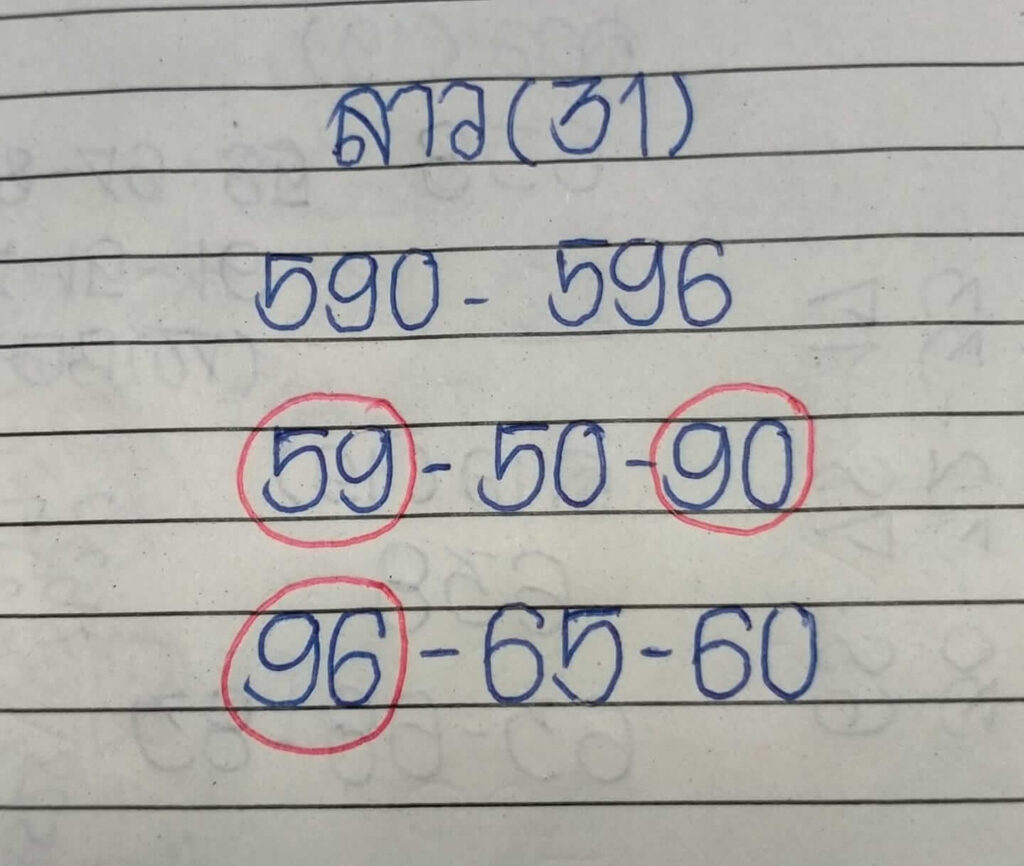 ลาว(31)
590 - 596
59 - 50 - 90
96 - 65 - 60